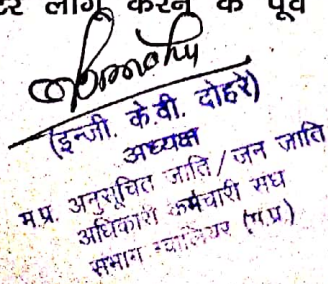 लागू करने के पूर्व
(इन्जी. के.वी. दोहरे)
अध्यक्ष
म.प्र. अनुसूचित जाति/जन जाति
अधिकारी कर्मचारी संघ
संभाग ग्वालियर (म.प्र.)